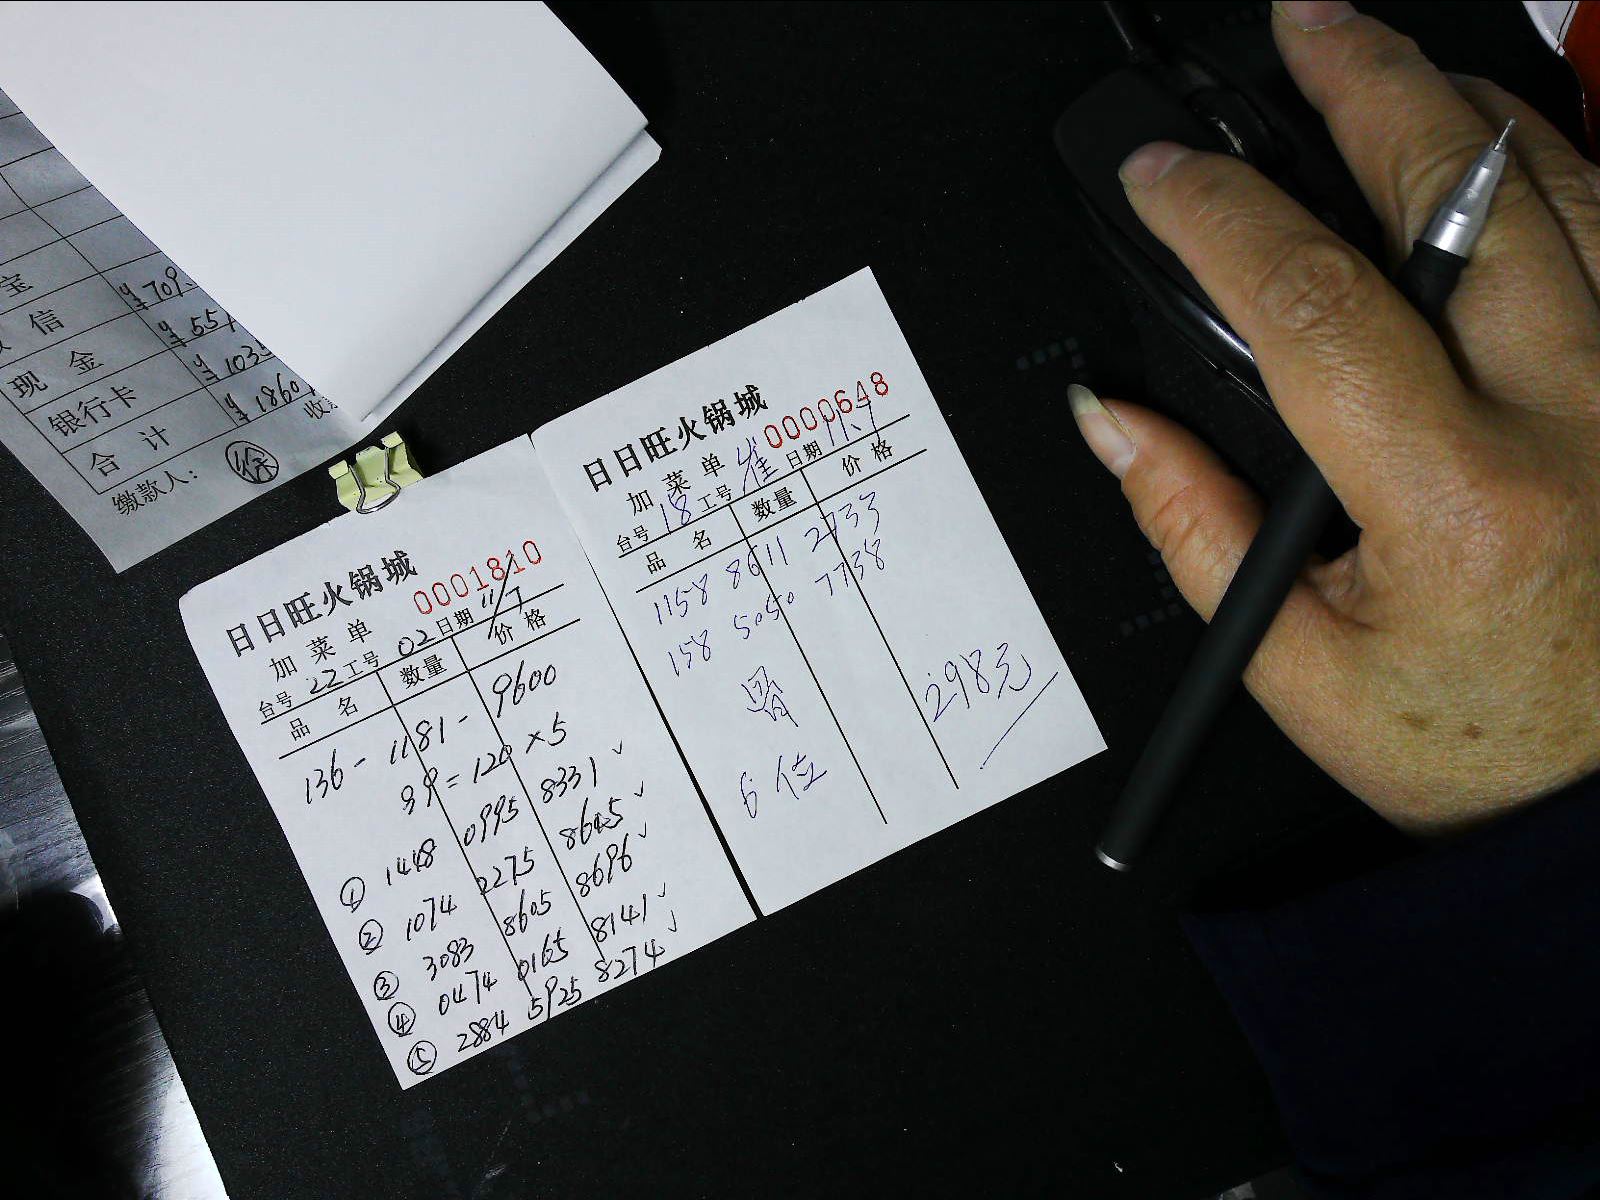 宝 ¥709.
信 ¥551
现金 ¥1035
银行卡 ¥1860
合计 收
缴款人： 徐
日日旺火锅城
0001810
加菜单
台号 22 工号 02 日期 11/7
品名 数量 价格
136-1181-9600
39=120×5
① 1448 0995 8331 ✓
② 1074 2275 8645 ✓
③ 3083 8605 8696 ✓
④ 0474 0165 8141 ✓
⑤ 2884 5925 8274 ✓
日日旺火锅城
0000648
加菜单
台号 18 工号 崔 日期 11.7
品名 数量 价格
1158 8611 2733
158 5050 7738
298元
6位